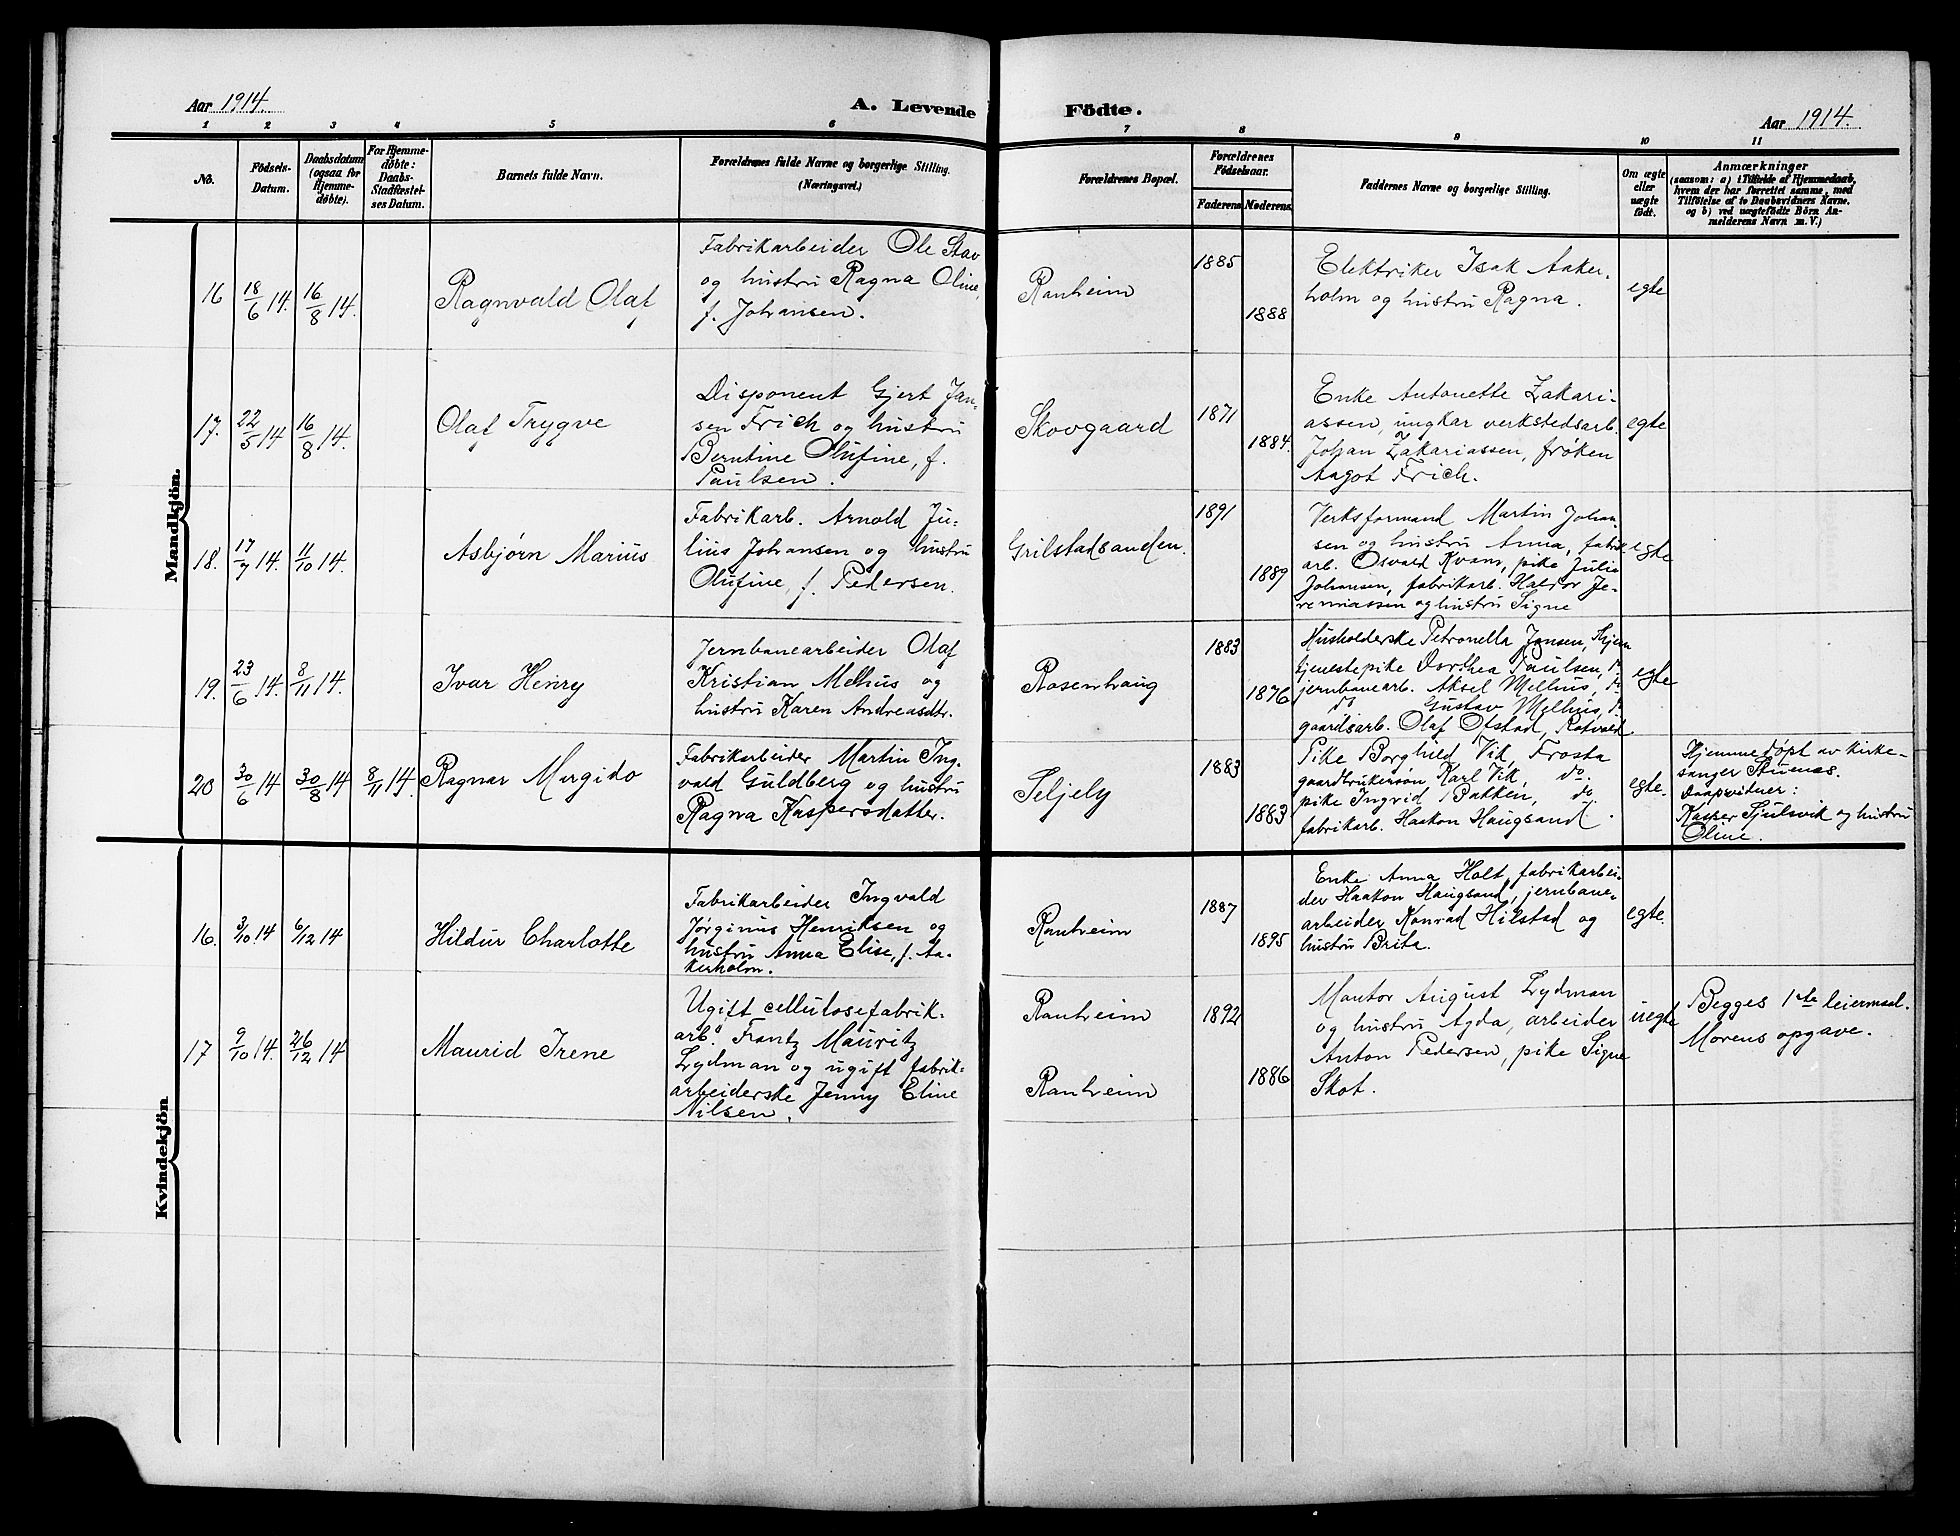 Aar 1914.
A. Levende Födte.
Aar 1914.
1 2 3 4 5 6 7 8 9 10 11
No.
Födsels-
Datum.
Daabsdatum
(ogsaa for
Hjemme-
døbte).
For Hjemme-
døbte:
Daabs-
Stadfæstel-
ses Datum.
Barnets fulde Navn.
Forældrenes fulde Navne og borgerlige Stilling.
(Næringsvei.)
Forældrenes Bopæl.
Forældrenes
Fødselsaar.
Faderens. Moderens.
Faddernes Navne og borgerlige Stilling.
Om ægte
eller
uægte
født.
Anmærkninger
(saasom: a) i Tilfælde af Hjemmedaab,
hvem der har forrettet samme, med
Tilföielse af to Daabsvidners Navne,
og b) ved uægtefödte Börn An-
melderens Navn m. V.)
Mandkjön.
16 18/6 14. 16/8 14.
Ragnvald Olaf
Fabrikarbeider Ole Stav
og hustru Ragna Oline,
f. Johansen.
Ranheim
1885
1888
Elektriker Isak Aaker-
holm og hustru Ragna.
egte
17. 22/5 14 16/8 14.
Olaf Trygve
Disponent Gjert Jan-
sen Frich og hustru
Berntine Olufine, f.
Paulsen.
Skovgaard
1871
1884.
Enke Antonette Zakari-
assen, ungkar verkstedsarb.
Johan Zakariassen, frøken
Aagot Frich.
egte
18. 17/7 14. 11/10 14.
Asbjørn Marius
Fabrikarb. Arnold Ju-
lius Johansen og hustru
Olufine, f. Pedersen.
Grilstadsanden.
1891
1889
Verksformand Martin Johan-
sen og hustru Anna, fabrik-
arb. Osvald Kvam, pike Julie
Johansen, fabrikarb. Haldor Je-
remiassen og hustru Signe
egte
19. 23/6 14. 8/11 14.
Ivar Henry
Jernbanearbeider Olaf
Kristian Melhus og
hustru Karen Andreasdtr.
Rosenhaug
1883
1876
Husholderske Petronella Jensen,
tjenestepike Dorthea Paulsen,
jernbanearb. Aksel Melhus,
do Gustav Melhus,
gaardsarb. Olaf Olstad, Rotvold
egte
20 30/6 14 30/8 14 8/11 14.
Ragnar Margido
Fabrikarbeider Martin Ing-
vald Guldberg og hustru
Ragna Kaspersdatter.
Seljely
1883
1883
Pike Borghild Vik, Frosta
gaardbrukersøn Karl Vik, do.
pike Ingrid Bakken, do.
fabrikarb. Haakon Haugsand.
egte.
Hjemmedøpt av kirke-
sanger Stuenes.
Daapsvidner:
Kasper Sjulsvik og hustru
Oline.
Kvindekjön
16. 3/10 14 6/12 14
Hildur Charlotte
Fabrikarbeider Ingvald
Jørginus Henriksen og
hustru Anna Elise, f. Aa-
kerholm.
Ranheim
1887
1895
Enke Anna Holt, fabrikarbei-
der Haakon Haugsand, jernbane-
arbeider Konrad Hilstad og
hustru Brita.
egte.
17 9/10 14. 26/12 14
Maurid Irene
Ugift cellulosefabrik-
arb. Frantz Mauritz
Lydman og ugift fabrik-
arbeiderske Jenny Eline
Nilsen.
Ranheim
Ranheim
1892
1886
Montør August Lydman
og hustru Agda, arbeider
Anton Pedersen, pike Signe
Skot.
uegte
Begges 1ste leiermaal.
Morens opgave.